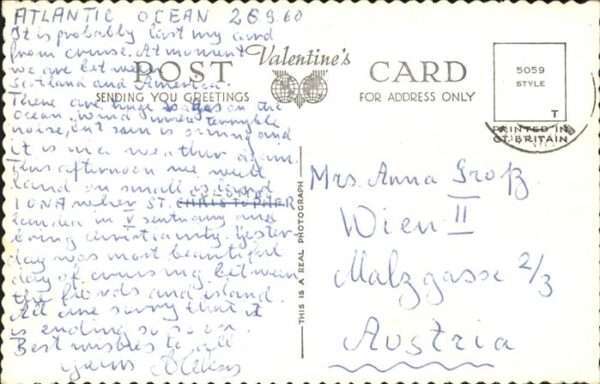 ATLANTIC OCEAN 28960
It is probably last my card
from cruise. At moment
we are between
Scotland and America.
There are huge on the
Ocean, wind
noise, but sun is and
it is nice weather again.
This afternoon we will
land on small island
IONA where ST. CHRISTOPHER
landed in V sentuary and
bring christianity. Yester-
day was most beautiful
day of cruising between
the fiords and island.
All are sorry that it
is ending so soon.
Best wishes to all
yours
Valentine's
POST CARD
SENDING YOU GREETINGS
FOR ADDRESS ONLY
5059
STYLE
T
PRINTED IN
GT. BRITAIN
THIS IS A REAL PHOTOGRAPH
Mrs. Anna Groß
Wien II
Malzgasse 2/3
Austria